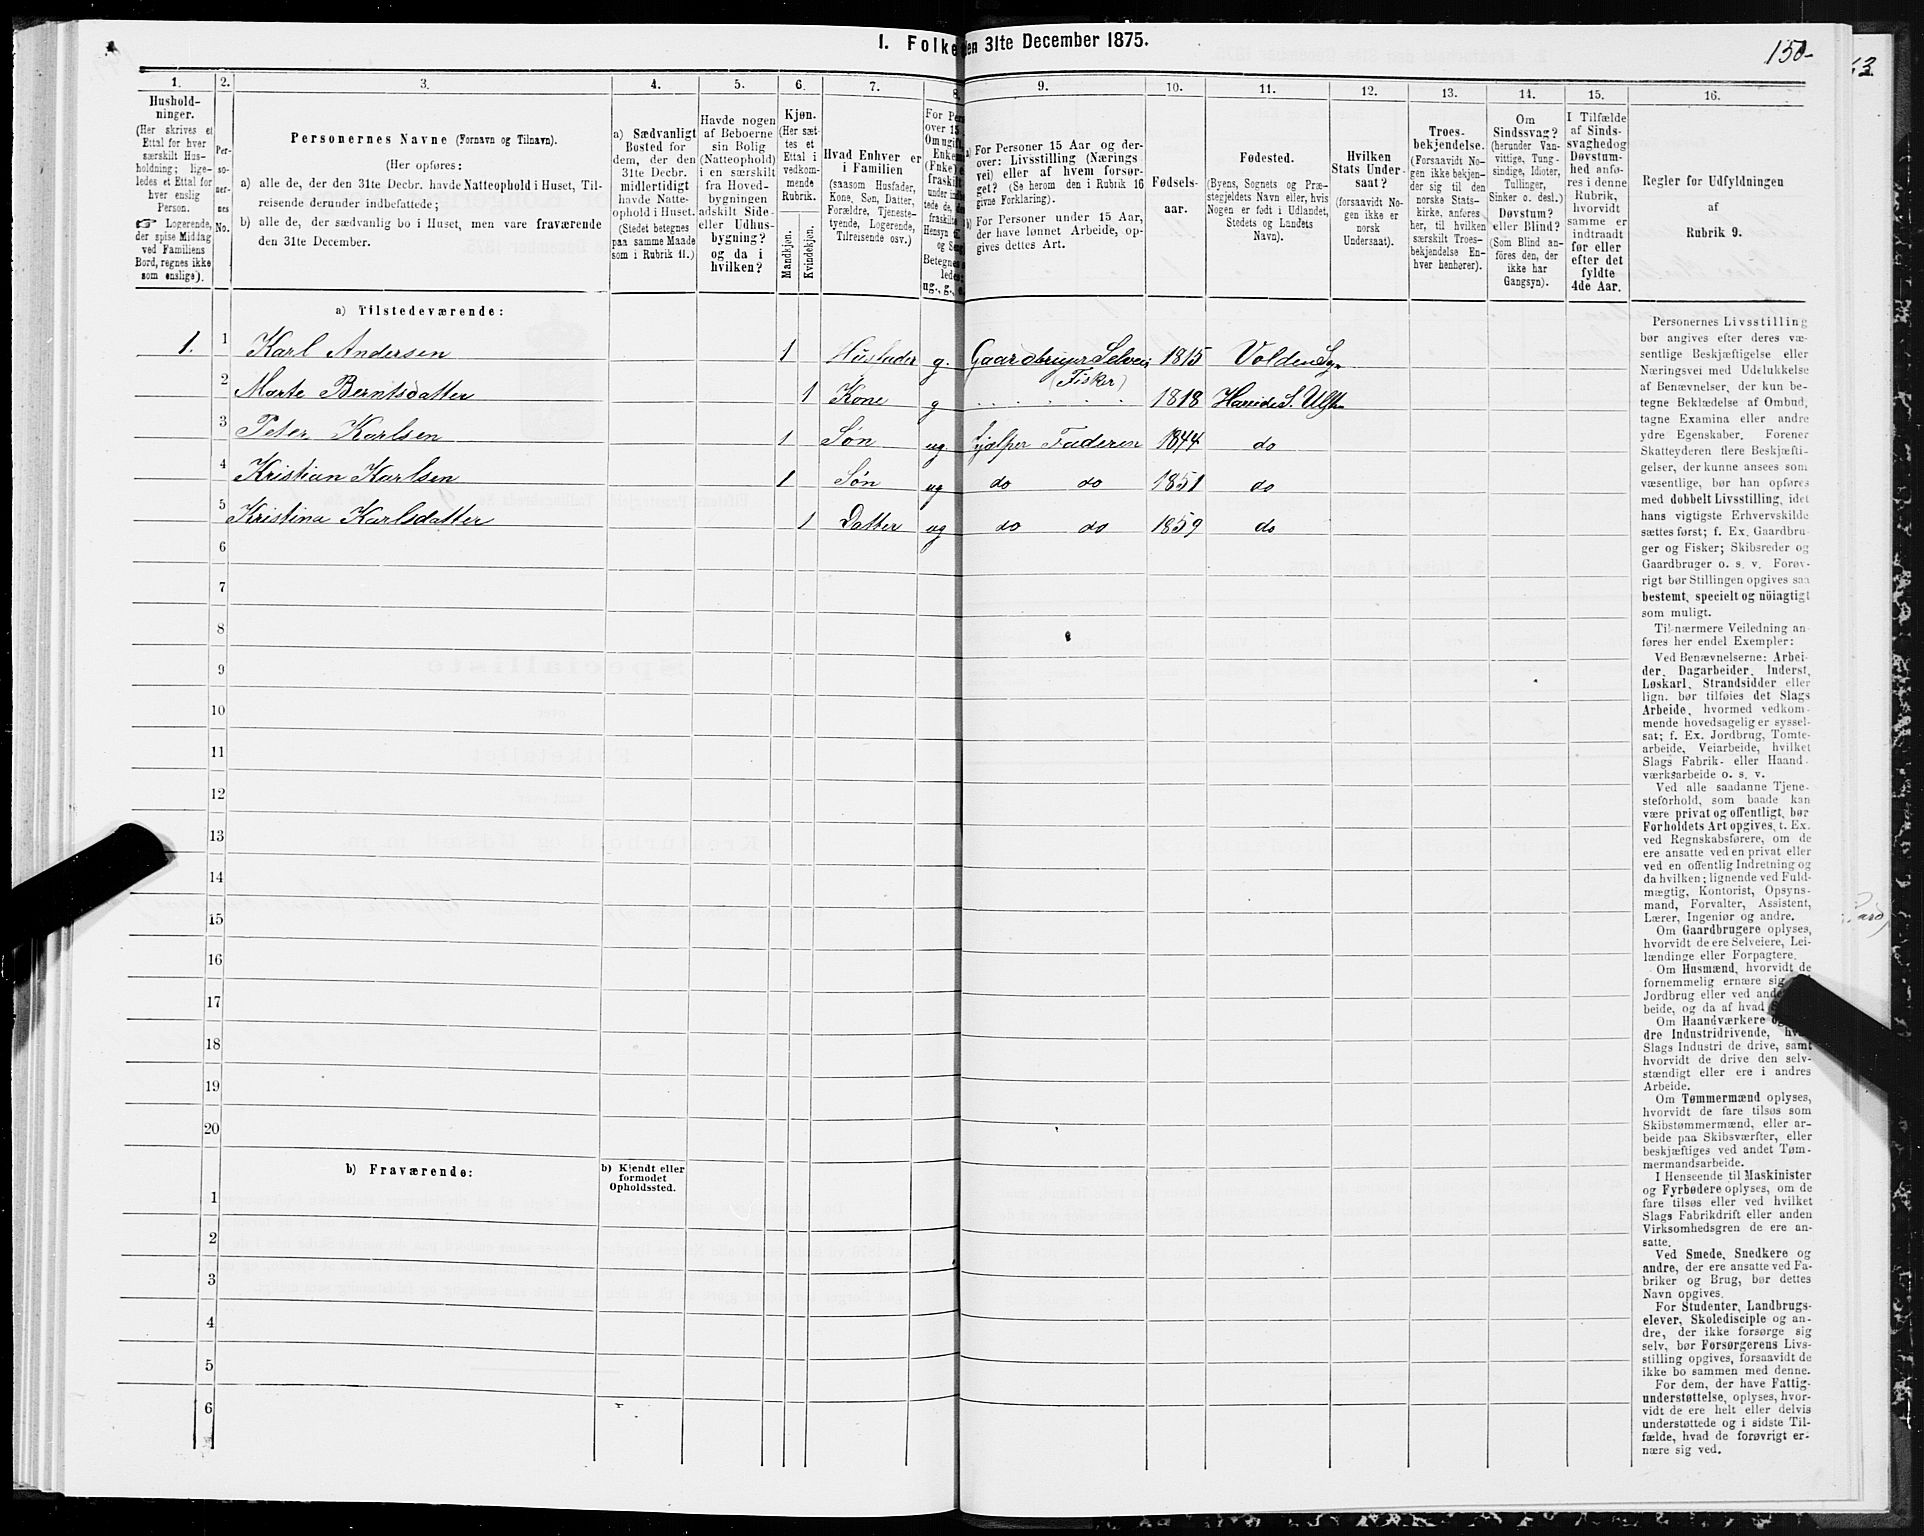 1. Folke en 31te December 1875.
150
1.
Hushold-
ninger.
(Her skrives et
Ettal for hver
særskilt Hus-
holdning; lige-
ledes et Ettal for
hver enslig
Person.
☞ Logerende,
der spise Middag
ved Familiens
Bord, regnes ikke
som enslige).
2.
Per-
so-
ner-
nes
No.
3.
Personernes Navne (Fornavn og Tilnavn).
(Her opføres:
a) alle de, der den 31te Decbr. havde Natteophold i Huset, Til-
reisende derunder indbefattede;
b) alle de, der sædvanlig bo i Huset, men vare fraværende
den 31te December.
4.
a) Sædvanligt
Bosted for
dem, der den
31te Decbr.
midlertidigt
havde Natte-
ophold i Huset.
(Stedet betegnes
paa samme Maade
som i Rubrik 11.)
5.
Havde nogen
af Beboerne
sin Bolig
(Natteophold)
i en særskilt
fra Hoved-
bygningen
adskilt Side-
eller Udhus-
bygning?
og da i
hvilken?
6.
Kjøn.
(Her sæt-
tes et
Ettal i
vedkom-
mende
Rubrik.
Mandkjøn.
Kvindekjøn.
7.
Hvad Enhver er
i Familien
(saasom Husfader,
Kone, Søn, Datter,
Forældre, Tjeneste-
tyende, Logerende,
Tilreisende osv.)
8.
For Pers
over 15
Om ugift,
Enkem
(Enke) e
fraskilt
ug., g., e.
9.
a) For Personer 15 Aar og der-
over: Livsstilling (Nærings-
vei) eller af hvem forsør-
get? (Se herom den i Rubrik 16
givne Forklaring).
b) For Personer under 15 Aar,
der have lønnet Arbeide, op-
gives dettes Art.
10.
Fødsels-
aar.
11.
Fødested.
(Byens, Sognets og Præ-
stegjeldets Navn eller, hvis
Nogen er født i Udlandet,
Stedets og Landets
Navn).
12.
Hvilken
Stats Under-
saat?
(forsaavidt No-
gen ikke er
norsk
Undersaat).
13.
Troes-
bekjendelse.
(Forsaavidt No-
gen ikke bekjen-
der sig til den
norske Stats-
kirke, anføres
her, til hvilken
særskilt Troes-
bekjendelse En-
hver henhører).
14.
Om
Sindssvag?
(herunder Van-
vittige, Tung-
sindige, Idioter,
Tullinger,
Sinker o. desl.)
Døvstum?
eller Blind?
(Som Blind an-
føres den, der
ikke har
Gangsyn).
15.
I Tilfælde
af Sinds-
svaghed og
Døvstum-
hed anfø-
res i denne
Rubrik,
hvorvidt
samme er
indtraadt
før eller
efter det
fyldte
4de Aar.
16.
Regler for Udfyldningen
af
Rubrik 9.
a) Tilstedeværende:
1. 1 Karl Andersen 1 Husfader g. Gaardbruger Selveier 1815 Volden
(Fisker)
2 Marte Berntsdatter 1 Kone g 1818 Hareide S.
3 Peter Karlsen 1 Søn ug. hjælper Faderen 1844 do
4 Kristian Karlsen 1 Søn ug do do 1851 do
5 Kristina Karlsdatter 1 Datter ug do do 1859 do
6
7
8
9
10
11
12
13
14
15
16
17
18
19
20
b) Fraværende:
b) Kjendt eller
formodet
Opholdssted.
1
2
3
4
5
6
Personernes Livsstilling
bør angives efter deres væ-
sentlige Beskjæftigelse eller
Næringsvei med Udelukkelse
af Benævnelser, der kun be-
tegne Beklædelse af Ombud,
tagne Examina eller andre
ydre Egenskaber. Forener
Skatteyderen flere Beskjæfti-
gelser, der kunne ansees som
væsentlige, bør han opføres
med dobbelt Livsstilling, idet
hans vigtigste Erhvervskilde
sættes først; f. Ex. Gaardbru-
ger og Fisker; Skibsreder og
Gaardbruger o. s. v. Forøv-
rigt bør Stillingen opgives saa
bestemt, specielt og nöiagtigt
som muligt.
Til nærmere Veiledning an-
føres her endel Exempler:
Ved Benævnelserne: Arbei-
der, Dagarbeider, Inderst,
Løskarl, Strandsidder eller
lign. bør tilføies det Slags
Arbeide, hvormed vedkom-
mende hovedsagelig er syssel-
sat; f. Ex. Jordbrug, Tomte-
arbeide, Veiarbeide, hvilket
Slags Fabrik- eller Haand-
værksarbeide o. s. v.
Ved alle saadanne Tjene-
steforhold, som baade kan
være privat og offentligt, bør
Forholdets Art opgives, t. Ex.
ved Regnskabsførere, om de
ere ansatte ved en privat eller
ved en offentlig Indretning og
da hvilken; lignende ved Fuld-
mægtig, Kontorist, Opsyns-
mand, Forvalter, Assistent,
Lærer, Ingeniør og andre.
Om Gaardbrugere oplyses,
hvorvidt de ere Selveiere, Lei-
lændinge eller Forpagtere.
Om Husmænd, hvorvidt de
fornemmelig ernære sig
Jordbrug eller ved and
beide, og da af hvad
Om Haandværkere og
dre Industridrivende, hv
Slags Industri de drive, samt
hvorvidt de drive den selv-
stændigt eller ere i andres
Arbeide.
Om Tømmermænd oplyses,
hvorvidt de fare tilsøs som
Skibstømmermænd, eller ar-
beide paa Skibsværfter, eller
beskjæftiges ved andet Tøm-
mermandsarbeide.
I Henseende til Maskinister
og Fyrbødere oplyses, om de
fare tilsøs eller ved hvilket
Slags Fabrikdrift eller anden
Virksomhedsgren de ere an-
satte.
Ved Smede, Snedkere og
andre, der ere ansatte ved Fa-
briker og Brug, bør dettes
Navn opgives.
For Studenter, Landbrugs-
elever, Skoledisciple og an-
dre, der ikke forsørge sig
selv, bør Forsørgerens Livs-
stilling opgives, forsaavidt de
ikke bo sammen med denne.
For dem, der have Fattig-
understøttelse, oplyses, hvor-
vidt de ere helt eller delvis
understøttede og i sidste Til-
fælde, hvad de forøvrigt er-
nære sig ved.